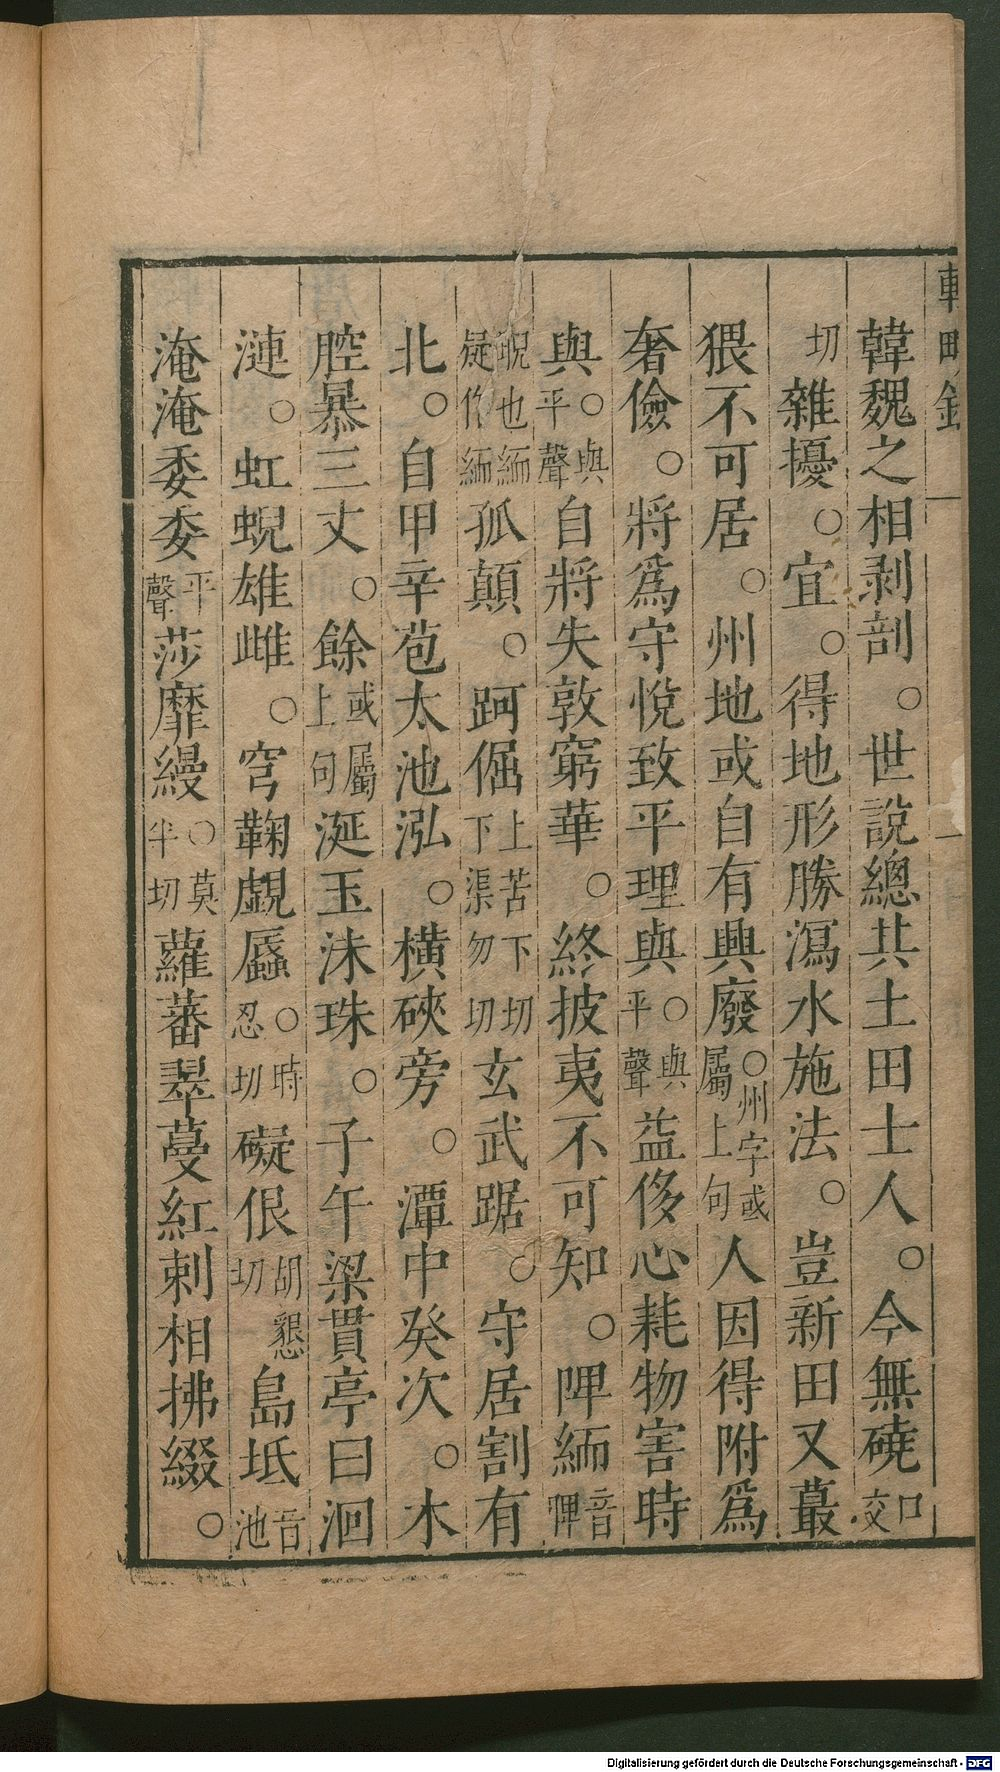 韓魏之相剥剖。世說總其土田士人。今無磽口交
切雜擾。宜。得地形勝瀉水施法。豈新田又蕞
猥不可居。州地或自有興廢○州字或屬上句人因得附爲
奢儉。將爲守悅致平理與○與平聲益侈心耗物害時
與○與平聲自將失敦窮華。終披夷不可知。陴緬音睥
睨也緬疑作緬孤顛。跒倔上苦下切下渠勿切玄武踞。守居割有
北。自甲辛苞太池泓。橫硤旁。潭中癸次。木
腔暴三丈。餘或屬上句涎玉沫珠。子午梁貫亭曰洄
漣。虹蜺雄雌。穹鞠覷蜃。○時忍切礙佷胡懇切島坻音池
淹淹委委平聲莎靡縵○莫半切蘿蕃翠蔓紅刺相拂綴。
Digitalisierung gefördert durch die Deutsche Forschungsgemeinschaft - DFG